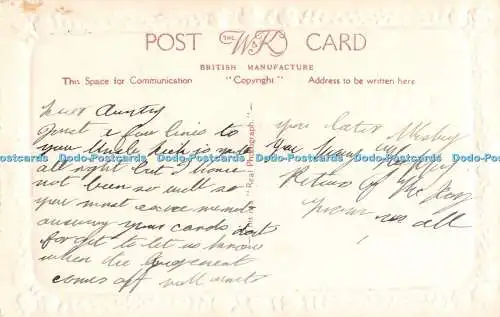 POST THE W&K CARD
BRITISH MANUFACTURE
This Space for Communication "Copyright" Address to be written here
Dear Aunty
Just a few lines to
you Uncle Dick is
all right but I have
not been so well so
you must excuse me not
answering your cards dont
forget to let us know
when the
comes off will write
"Real Photograph."
you later
you
Return of the Day
from us all
Dodo-Postcards Dodo-Postcards Dodo-Postcards Dodo-Postcards Dodo-Postcards